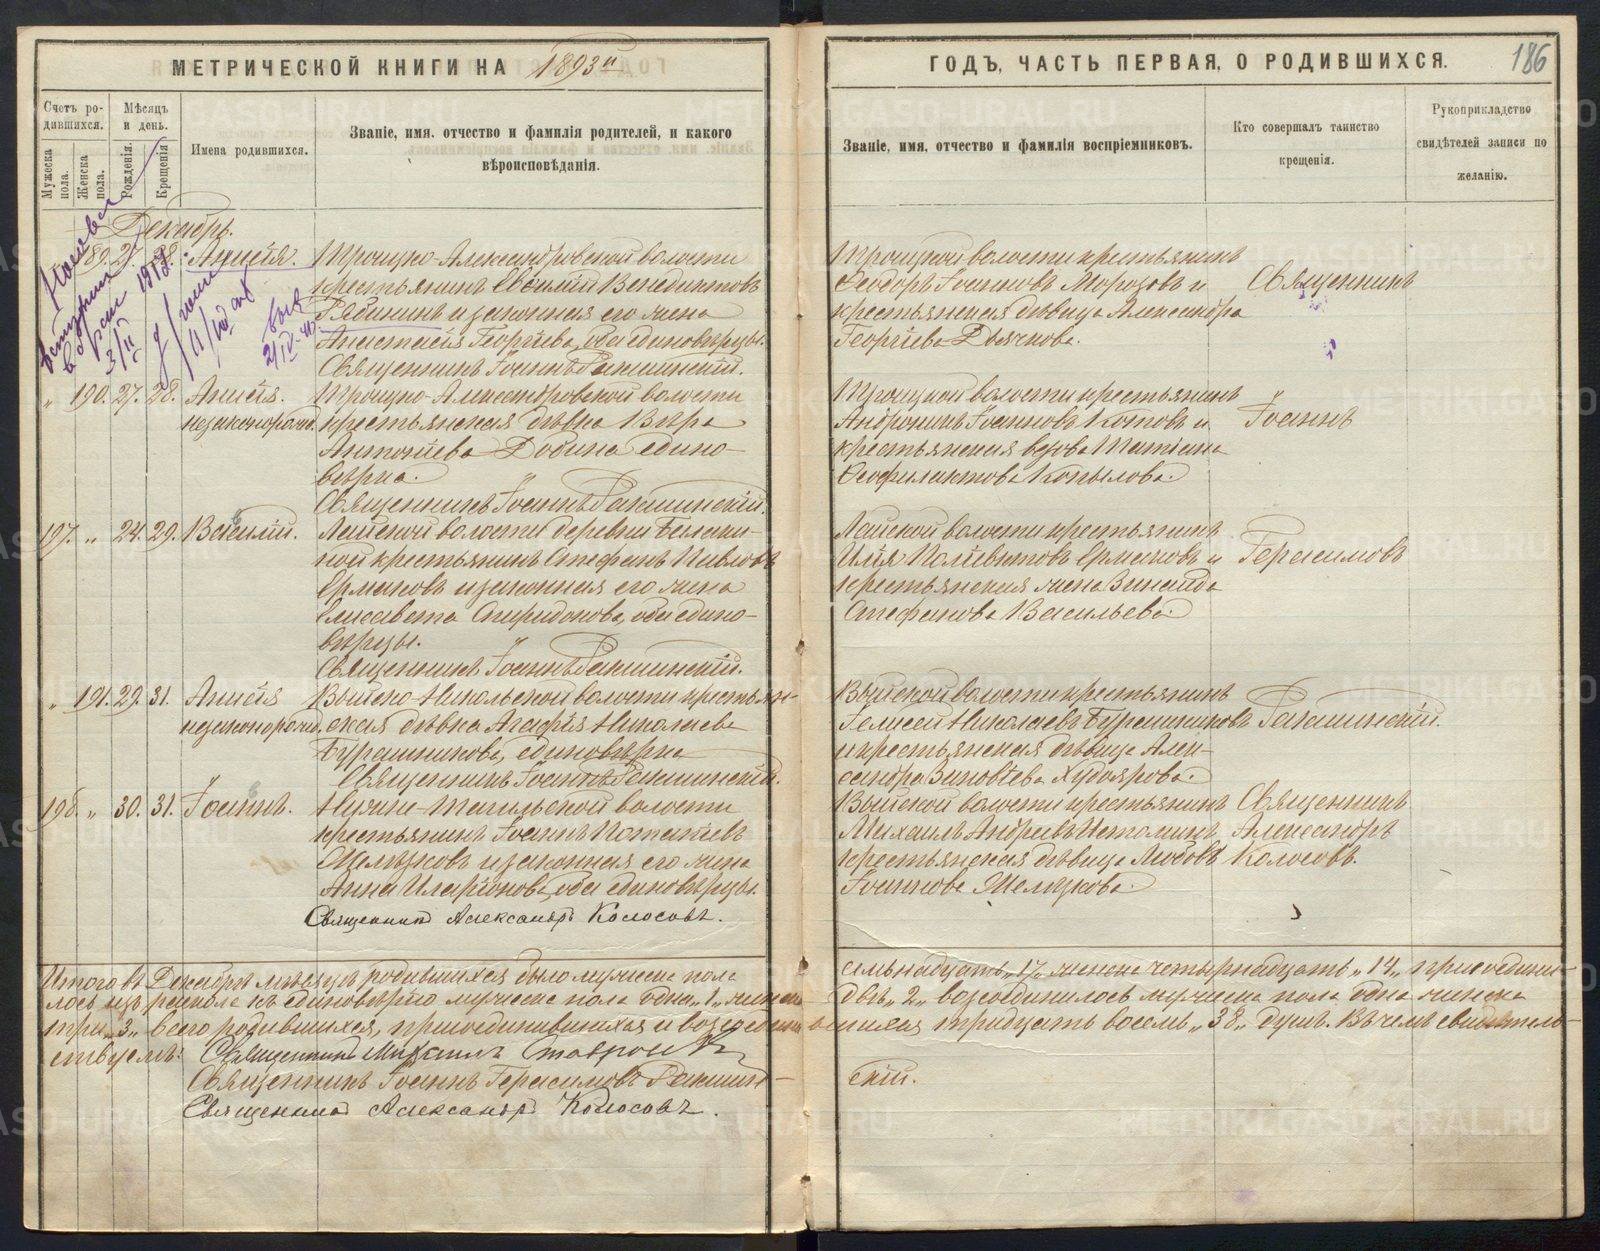 МЕТРИЧЕСКОЙ КНИГИ НА 1893й
Счетъ родившихся.
Мужеска пола.
Женска пола.
Мѣсяцъ и день.
Рожденія.
Крещенія
Имена родившихся.
Званіе, имя, отчество и фамилія родителей, и какого
вѣроисповѣданія.
Декабрь.
189. 27. 28. Анисія. Троицко-Александровской волости
крестьянинъ Василій Венедиктовъ
Рябининъ и законная его жена
Анастасія Георгіева, оба единовѣрцы.
Священникъ Іоаннъ
„ 190. 27. 28. Анисія. Троицко-Александровской волости
незаконорожд. крестьянская дѣвка Вѣра
Антоніева единовѣрка.
Священникъ Іоаннъ
197. „ 24. 29. Василій. Лайской волости деревни
крестьянинъ Стефанъ Павловъ
Ермаковъ и законная его жена
Елисавета Спиридонова, оба единовѣрцы.
Священникъ Іоаннъ
„ 191. 29. 31. Анисія Выйско-Никольской волости крестьян-
незаконорожд. ская дѣвка Агафія Николаева
Бурашникова, единовѣрка
Священникъ Іоаннъ
198. „ 30. 31. Іоаннъ. Нижне-Тагильской волости
крестьянинъ Іоаннъ Потапіевъ
и законная его жена
Анна Иларіонова, оба единовѣрцы.
Священникъ Александръ Колосовъ.
Итого въ Декабрѣ мѣсяцѣ родившихся было мужеска пола
лось изъ раскола къ единовѣрію мужеска пола одна „1„ женска
три „3„ всего родившихся, присоединившихся и возсоединив
ствуемъ: Священникъ Михаилъ
Священникъ Іоаннъ Герасимовъ
Священникъ Александръ Колосовъ.
ГОДЪ, ЧАСТЬ ПЕРВАЯ, О РОДИВШИХСЯ.
186
Званіе, имя, отчество и фамилія воспріемниковъ.
Кто совершалъ таинство
крещенія.
Рукоприкладство
свидѣтелей записи по
желанію.
Троицкой волости крестьянинъ
Феодоръ Іоанновъ Морозовъ и Священникъ
крестьянская дѣвица Александра
Георгіева Дьячкова.
Троицкой волости крестьянинъ
Андроникъ Іоанновъ Котовъ и Іоаннъ
крестьянская вдова Татіана
Феофилактова Копылова.
Лайской волости крестьянинъ
Илія Ермаковъ и Герасимовъ
крестьянская жена Зинаида
Стефанова Васильева
Выйской волости крестьянинъ
Елисей Николаевъ Бурашниковъ
и крестьянская дѣвица Алек-
сандра Зиновіева Худоярова.
Выйской волости крестьянинъ Священникъ
Михаилъ Андреевъ Истоминъ Александръ
крестьянская дѣвица Любовь Колосовъ.
Іоаннова
семьнадцать „17„ женска четырнадцать „14„ присоедини-
двѣ „2„ возсоединилось мужеска пола одна женска
шихся тридцать восемь „38„ душъ. Въ чемъ свидѣтель-
скій.